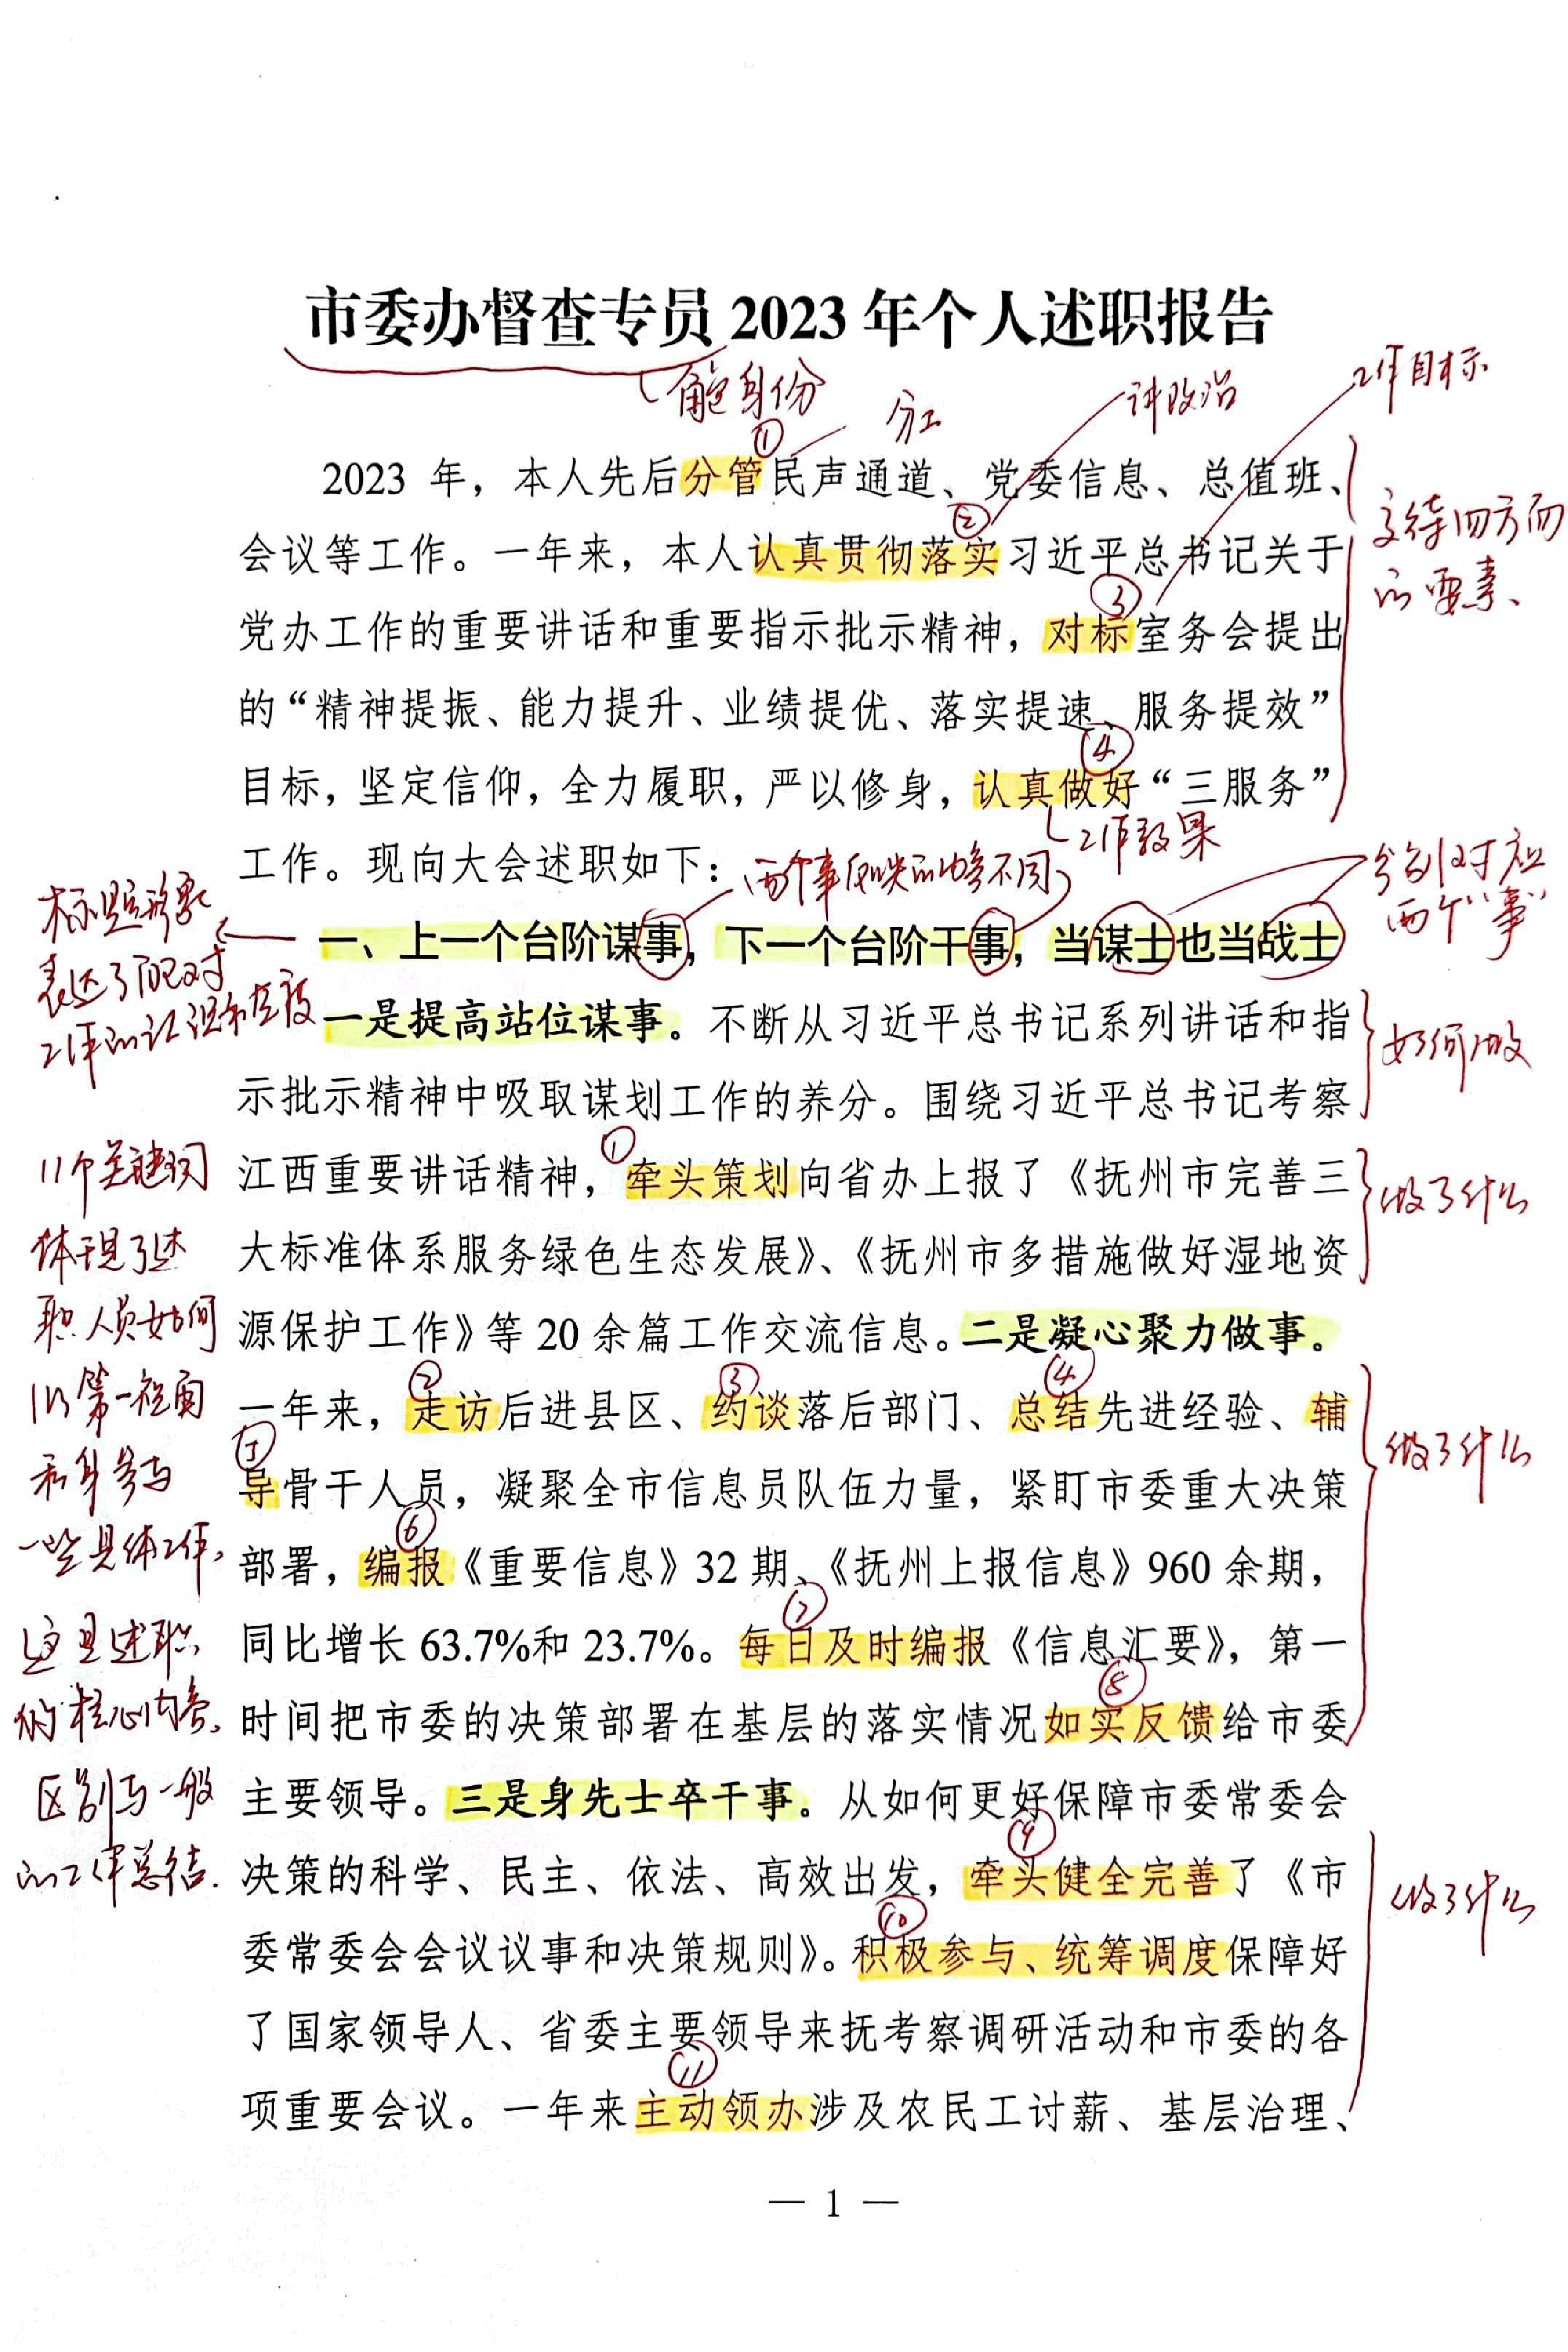 市委办督查专员 2023 年个人述职报告
角色身份
分工
讲政治
工作目标
①
2023 年，本人先后分管民声通道、党委信息、总值班、
②
会议等工作。一年来，本人认真贯彻落实习近平总书记关于
交待四方面
的要素、
③
党办工作的重要讲话和重要指示批示精神，对标室务会提出
的“精神提振、能力提升、业绩提优、落实提速、服务提效”
④
目标，坚定信仰，全力履职，严以修身，认真做好“三服务”
工作效果
工作。现向大会述职如下：
两个事反映的内容不同
分别对应
两个“事”
标题形象
表达了
工作的认识和态度
一、上一个台阶谋事，下一个台阶干事，当谋士也当战士
一是提高站位谋事。不断从习近平总书记系列讲话和指
如何做
示批示精神中吸取谋划工作的养分。围绕习近平总书记考察
①
江西重要讲话精神，牵头策划向省办上报了《抚州市完善三
做了什么
大标准体系服务绿色生态发展》、《抚州市多措施做好湿地资
源保护工作》等 20 余篇工作交流信息。二是凝心聚力做事。
② ③ ④
一年来，走访后进县区、约谈落后部门、总结先进经验、辅
⑤
导骨干人员，凝聚全市信息员队伍力量，紧盯市委重大决策
做了什么
⑥
部署，编报《重要信息》32 期、《抚州上报信息》960 余期，
⑦
同比增长 63.7%和 23.7%。每日及时编报《信息汇要》，第一
⑧
时间把市委的决策部署在基层的落实情况如实反馈给市委
主要领导。三是身先士卒干事。从如何更好保障市委常委会
⑨
决策的科学、民主、依法、高效出发，牵头健全完善了《市
做了什么
⑩
委常委会会议议事和决策规则》。积极参与、统筹调度保障好
了国家领导人、省委主要领导来抚考察调研活动和市委的各
⑪
项重要会议。一年来主动领办涉及农民工讨薪、基层治理、
11个关键词
体现了述
职人员如何
以第一视角
和身参与
一些具体工作，
这是述职
的核心内容，
区别与一般
的工作总结.
— 1 —